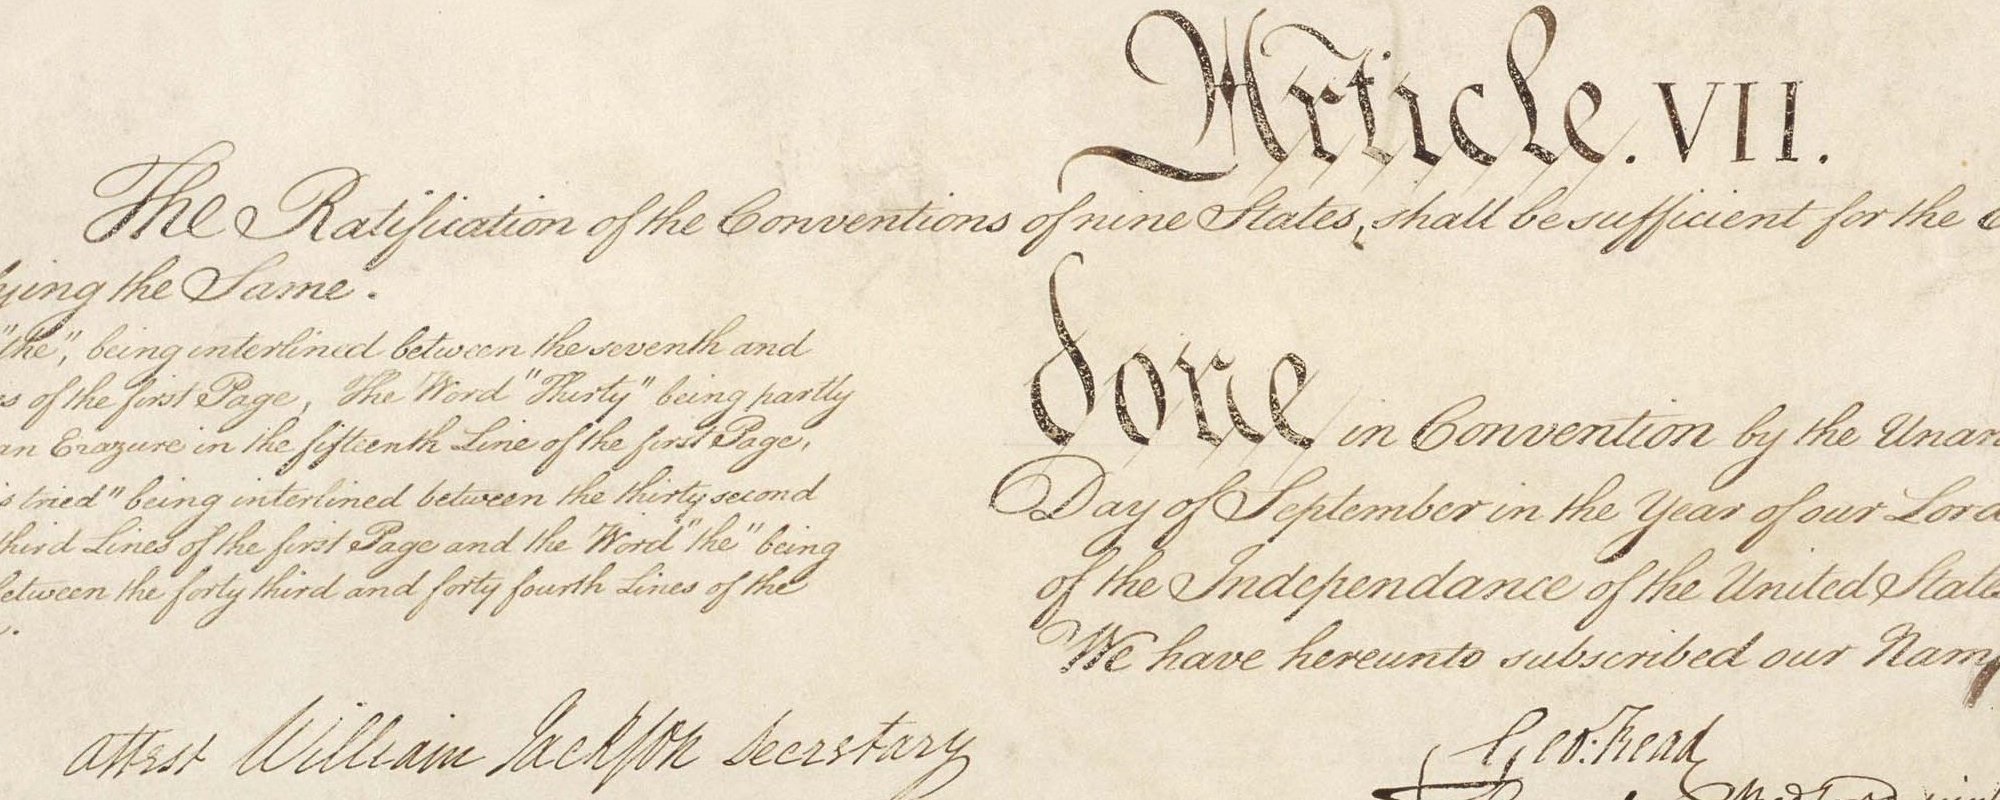 Article. VII.
The Ratification of the Conventions of nine States, shall be sufficient for the
ying the Same.
"the", being interlined between the seventh and
of the first Page, The Word "Thirty" being partly
an Erazure in the fifteenth Line of the first Page,
is tried" being interlined between the thirty second
third Lines of the first Page and the Word "the" being
between the forty third and forty fourth Lines of the
done in Convention by the Unan
Day of September in the Year of our Lord
of the Independance of the United States
We have hereunto subscribed our Nam
attest William Jackson Secretary
Geo: Read